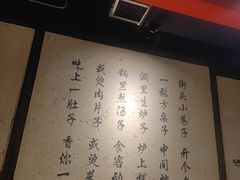 街头小巷子 开个
一张方桌子 中间
洞里生炉子 炉上
锅里熬汤子 食客
或烫肉片子 或烫
吃上一肚子 香你一